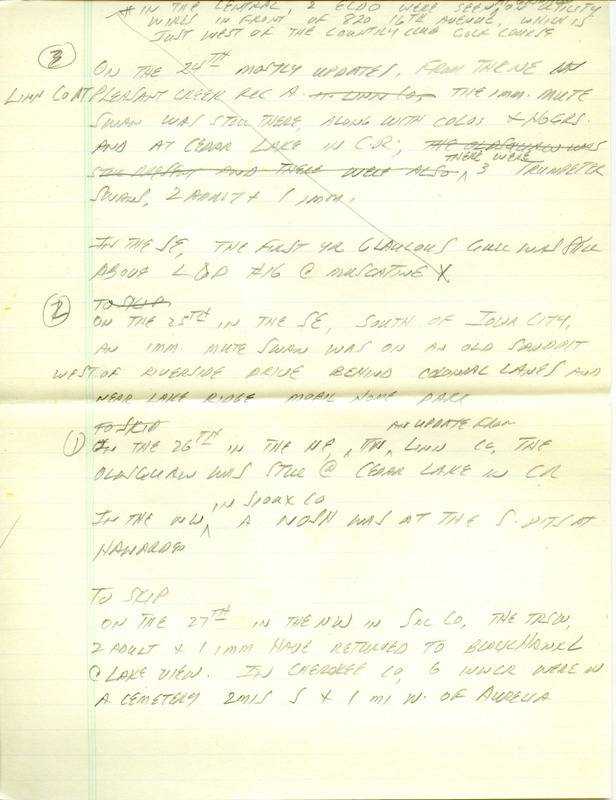 * IN THE CENTRAL, 2 ELDO WERE SEEN ON UTILITY
WIRES IN FRONT OF 820 16TH AVENUE, WHICH IS
JUST WEST OF THE COUNTRY CLUB GOLF COURSE
③
ON THE 24TH MOSTLY UPDATES, FROM THE NE IN
LINN CO AT PLEASANT CREEK REC A. IN LINN CO, THE IMM. MUTE
SWAN WAS STILL THERE, ALONG WITH COLOS & HOGRS.
AND AT CEDAR LAKE IN C.R; THE OLDSQUAW WAS
THERE WERE
STILL PRESENT AND THERE WERE ALSO ^ 3 TRUMPETER
SWANS, 2 ADULT & 1 IMM.
IN THE SE, THE FIRST YR GLAUCOUS GULL WAS STILL
ABOVE L&D #16 @ MUSCATINE X
② TO SKIP
ON THE 25TH IN THE SE, SOUTH OF IOWA CITY,
AN IMM. MUTE SWAN WAS ON AN OLD SANDPIT
WEST OF RIVERSIDE DRIVE BEHIND COLONIAL LANES AND
NEAR LAKE RIDGE MOBIL HOME PARK
TO SKIP AN UPDATE FROM
① IN THE 26TH IN THE NE, ^ LINN CO, THE
OLDSQUAW WAS STILL @ CEDAR LAKE IN C.R
IN SIOUX CO
IN THE NW ^ A NOSH WAS AT THE S. PITS AT
HAWARDEN
TO SKIP
ON THE 27TH IN THE NW IN SAC CO, THE TRSW,
2 ADULT & 1 IMM HAVE RETURNED TO BLACKHAWK L
@ LAKE VIEW. IN CHEROKEE CO, 6 WWCR WERE IN
A CEMETERY 2MIS S & 1 MI W. OF AURELIA